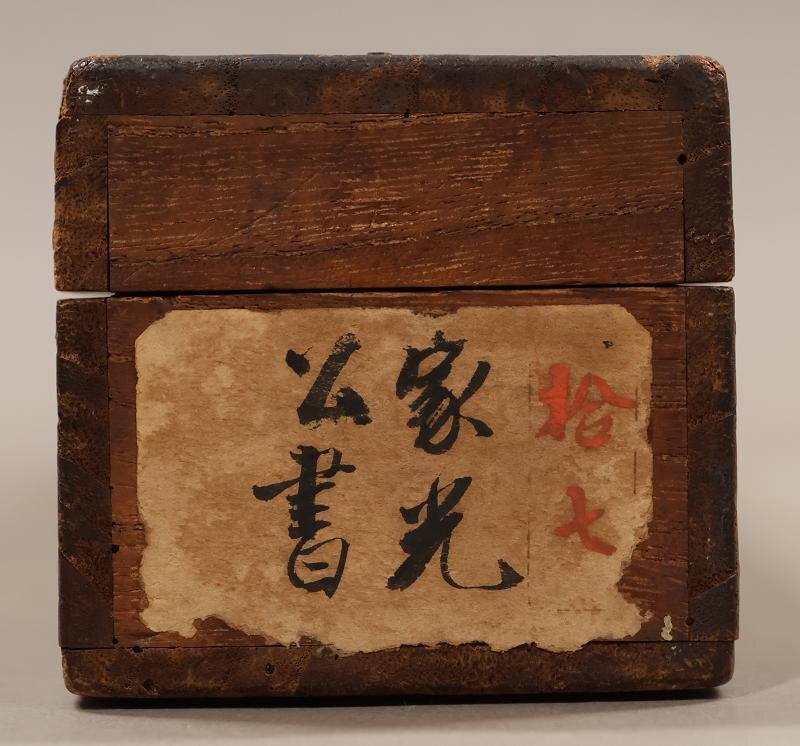 拾七
家光
公書